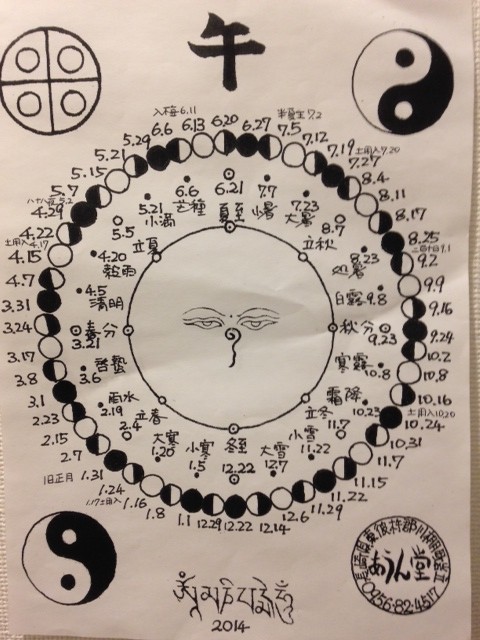 午
入梅 6.11
半夏生 7.2
6.6
6.13
6.20
6.27
7.5
7.12
7.19
土用入 7.20
7.27
8.4
8.11
8.17
8.25
二百十日 9.1
9.2
9.9
9.16
9.24
10.2
10.8
10.16
土用入 10.20
10.24
10.31
11.7
11.15
11.22
11.29
12.6
12.14
12.22
12.29
1.1
1.8
1.16
1.17 土用入
1.24
1.31
旧正月
2.7
2.15
2.23
3.1
3.8
3.17
3.24
3.31
4.7
4.15
土用入 4.17
4.22
4.29
八十八夜 5.2
5.7
5.15
5.21
5.29
6.21
夏至
7.7
小暑
7.23
大暑
8.7
立秋
8.23
処暑
白露 9.8
秋分
9.23
寒露
10.8
霜降
10.23
立冬
11.7
小雪
11.22
大雪
12.7
冬至
12.22
小寒
1.5
大寒
1.20
立春
2.4
雨水
2.19
啓蟄
3.6
春分
3.21
4.5
清明
4.20
穀雨
5.5
立夏
5.21
小満
6.6
芒種
2014
あうん堂
0956-82-4517